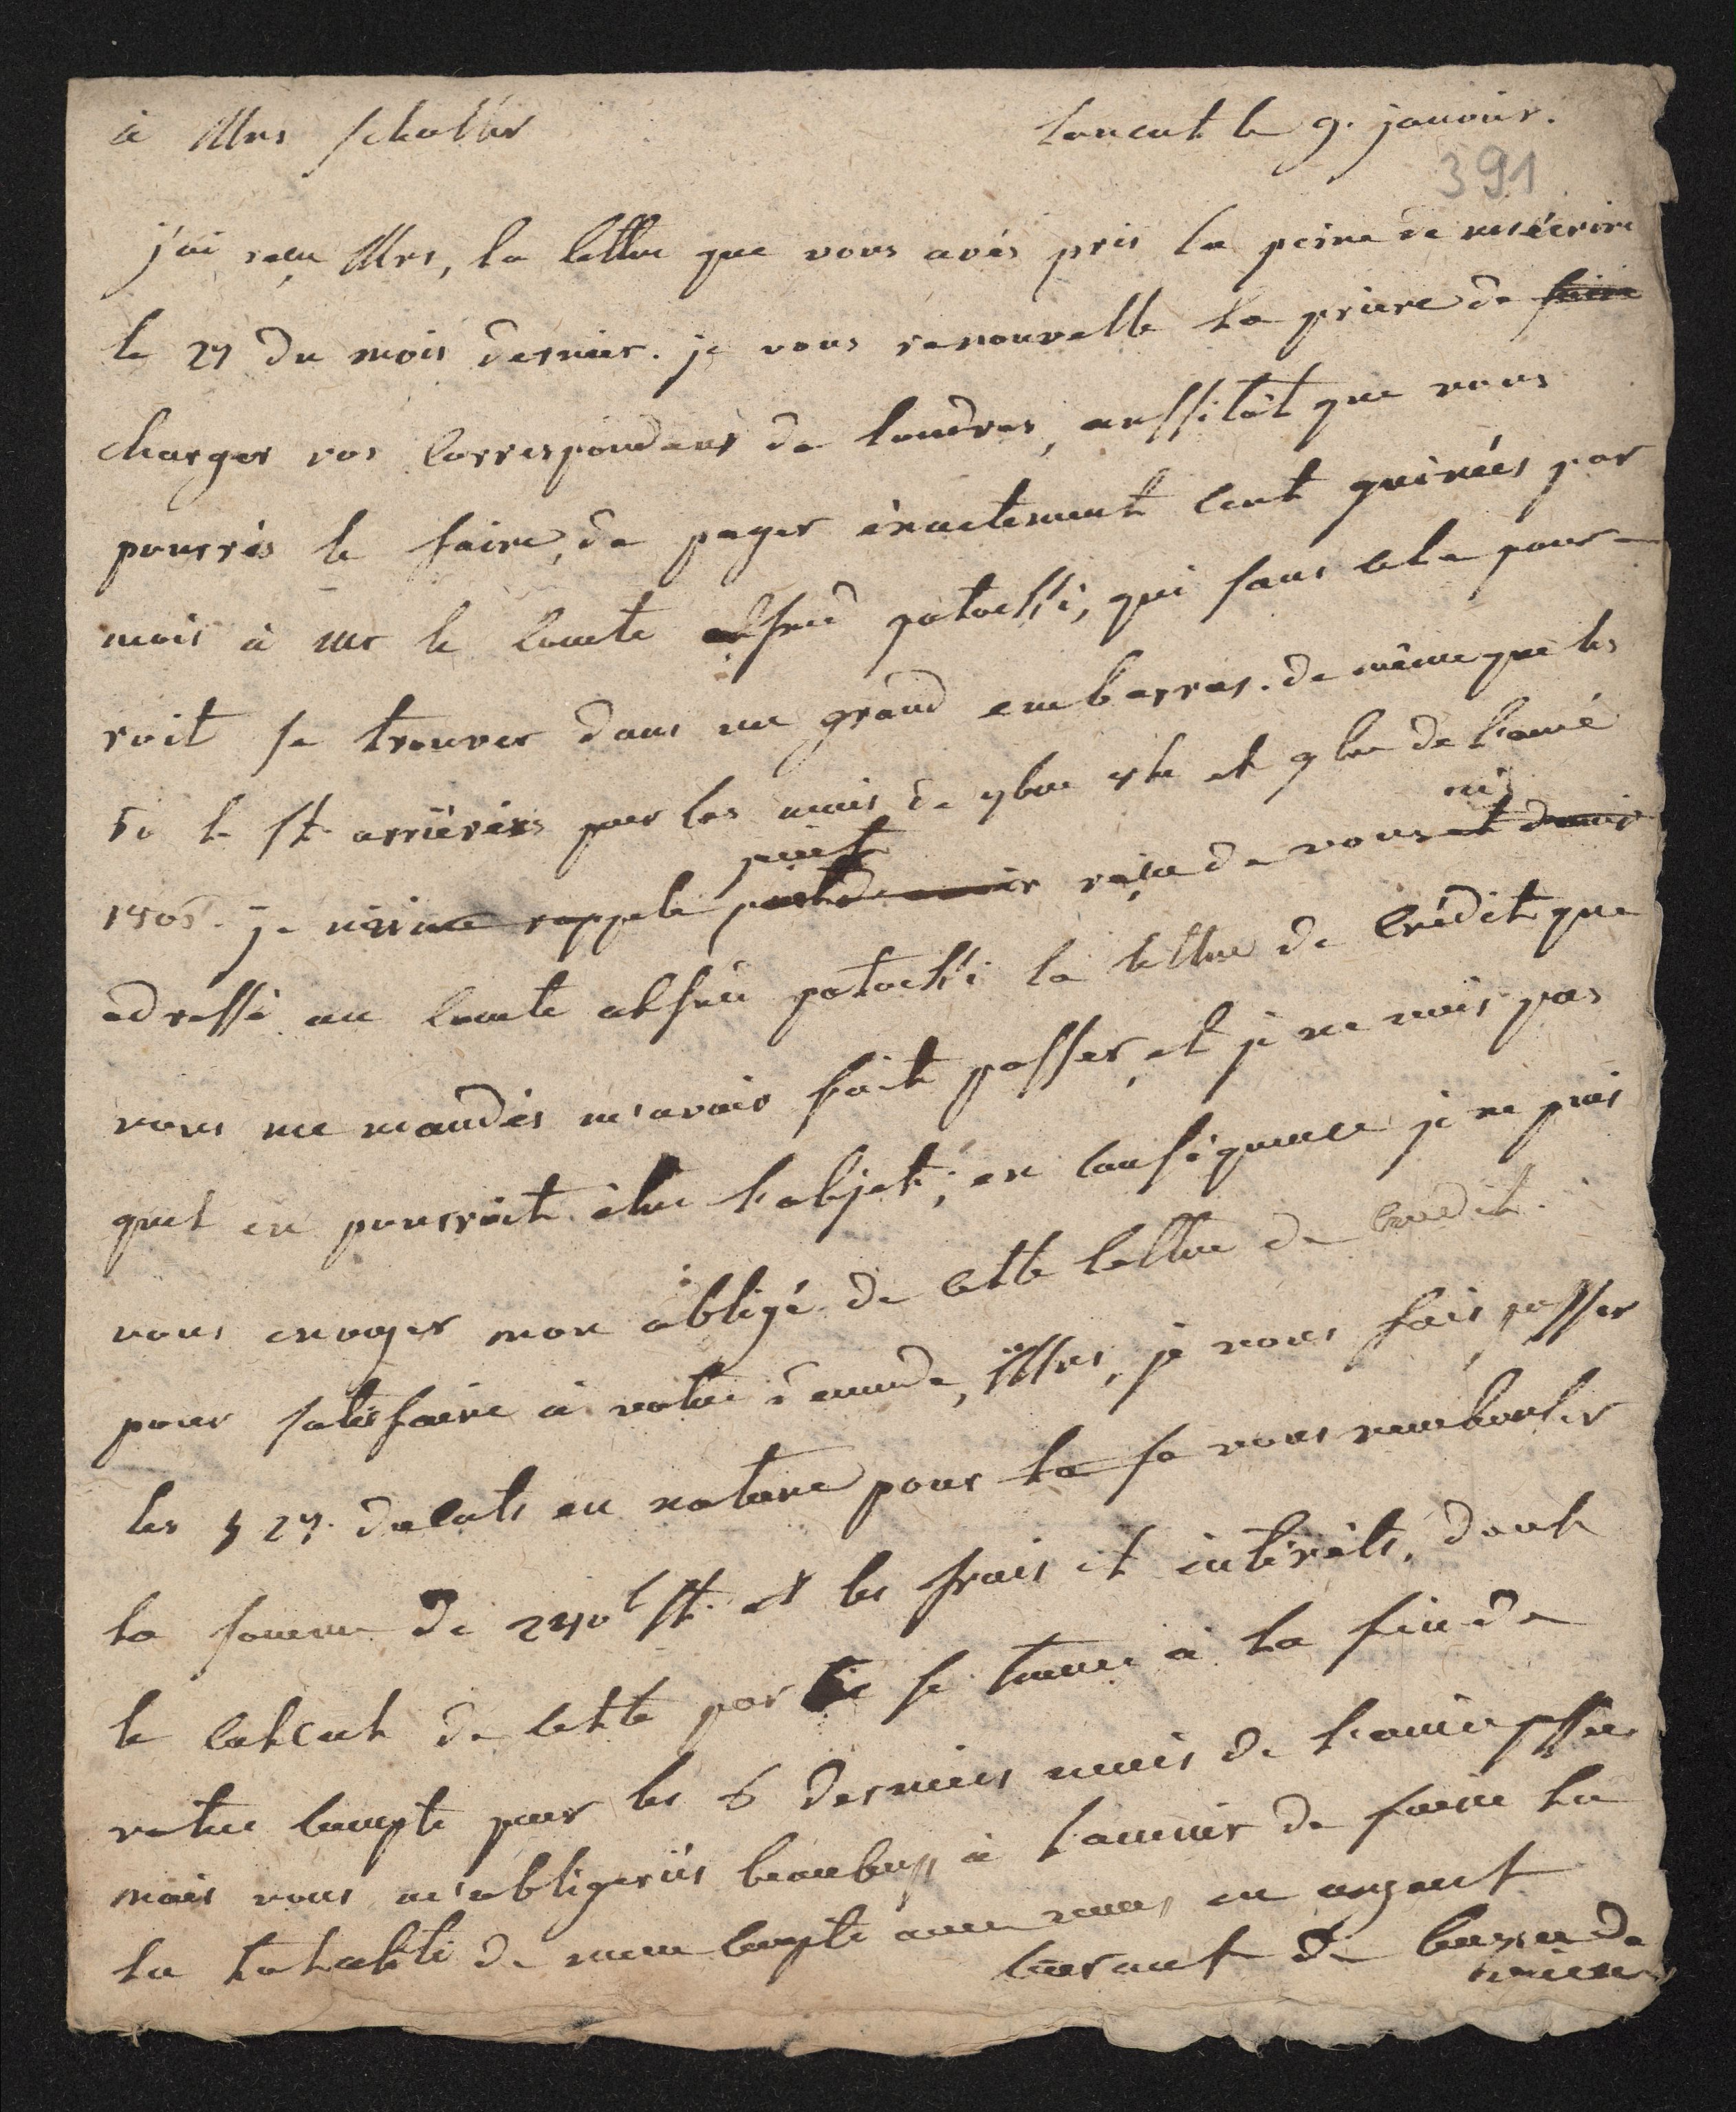 à Mrs schuller lancut le 9. janvier.
391
j'ai reçu Mrs, la lettre que vous avés pris la peine de m'écrire
le 27 du mois dernier. je vous renouvelle la priere de faire
charger vos correspondans de londres, aussitôt que vous
pourrés le faire, de payer éxactement cent guinées par
mois à mr le comte alfred potocki, qui sans cela pour-
roit se trouver dans un grand embarras. de même que les
50 l. st. arriérées pour les mois de 7bre 8bre et 9bre de l'année
1805. je n'ai me rappele point reçu de vous ni
adressé au comte alfred potocki la lettre de crédit que
vous me mandés m'avoir fait passer, et je ne vois pas
quel en pourroit être l'objet; en conséquence je ne puis
vous envoyer mon obligé de cette lettre de credit.
pour satisfaire à votre demande, Mrs, je vous fais passer
les 527. ducats en nature pour la se vous rembourser
la somme de 240 l st. et les frais et intérêts, dont
le calcul de cette par se trouve à la fin de
votre compte pour les 6 derniers mois de l'année passée
mais vous m'obligeriés beaucoup à l'avenir de faire la
la totalité de mon compte avec vous en argent
courant de